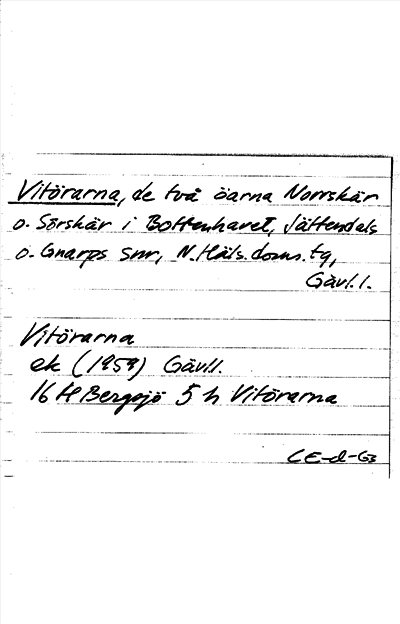 Vitörarna, de två öarna Norrskär
o. Sörskär i Bottenhavet, Jättendals
o. Gnarps snr, N.Häls.doms.tg,
Gävl.l.
Vitörarna
ek (1959) Gävl.l.
16 H Bergsjö 5 h Vitörarna